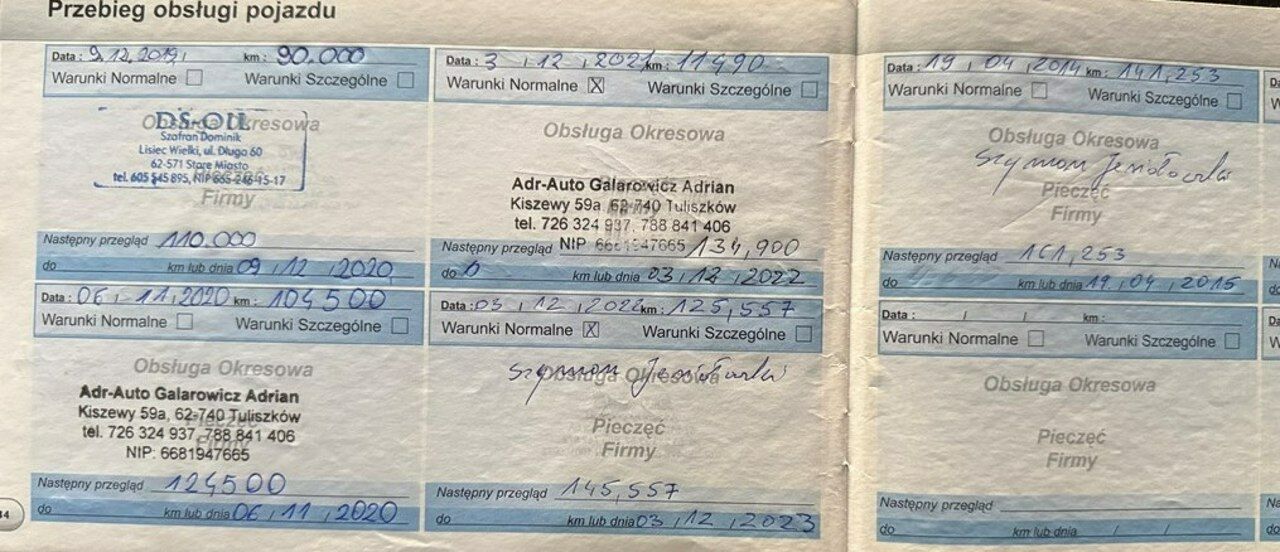 Przebieg obsługi pojazdu
Data : 9.12.2019, km : 90.000
Warunki Normalne Warunki Szczególne
Obsługa Okresowa
DS-OIL
Szafran Dominik
Lisiec Wielki, ul. Długa 60
62-571 Stare Miasto
tel. 605 545 895, NIP 665-246-15-17
Firmy
Następny przegląd 110.000
do km lub dnia 09, 12, 2020
Data : 06, 11, 2020 km : 104500
Warunki Normalne Warunki Szczególne
Obsługa Okresowa
Adr-Auto Galarowicz Adrian
Kiszewy 59a, 62-740 Tuliszków
tel. 726 324 937, 788 841 406
NIP: 6681947665
Następny przegląd 124500
do km lub dnia 06, 11, 2020
Data : 3, 12, 2021 km : 11490
Warunki Normalne X Warunki Szczególne
Obsługa Okresowa
Adr-Auto Galarowicz Adrian
Kiszewy 59a, 62-740 Tuliszków
tel. 726 324 937, 788 841 406
NIP: 6681947665
Następny przegląd 134,900
do km lub dnia 03, 12, 2022
Data : 03, 12, 2022 km : 125,557
Warunki Normalne X Warunki Szczególne
Obsługa Okresowa
Szymon
Pieczęć
Firmy
Następny przegląd 145,557
do km lub dnia 03, 12, 2023
Data : 19, 04, 2014 km : 141,253
Warunki Normalne Warunki Szczególne
Obsługa Okresowa
Szymon
Pieczęć
Firmy
Następny przegląd 161,253
do km lub dnia 19, 04, 2015
Data : / / km :
Warunki Normalne Warunki Szczególne
Obsługa Okresowa
Pieczęć
Firmy
Następny przegląd
do km lub dnia / /